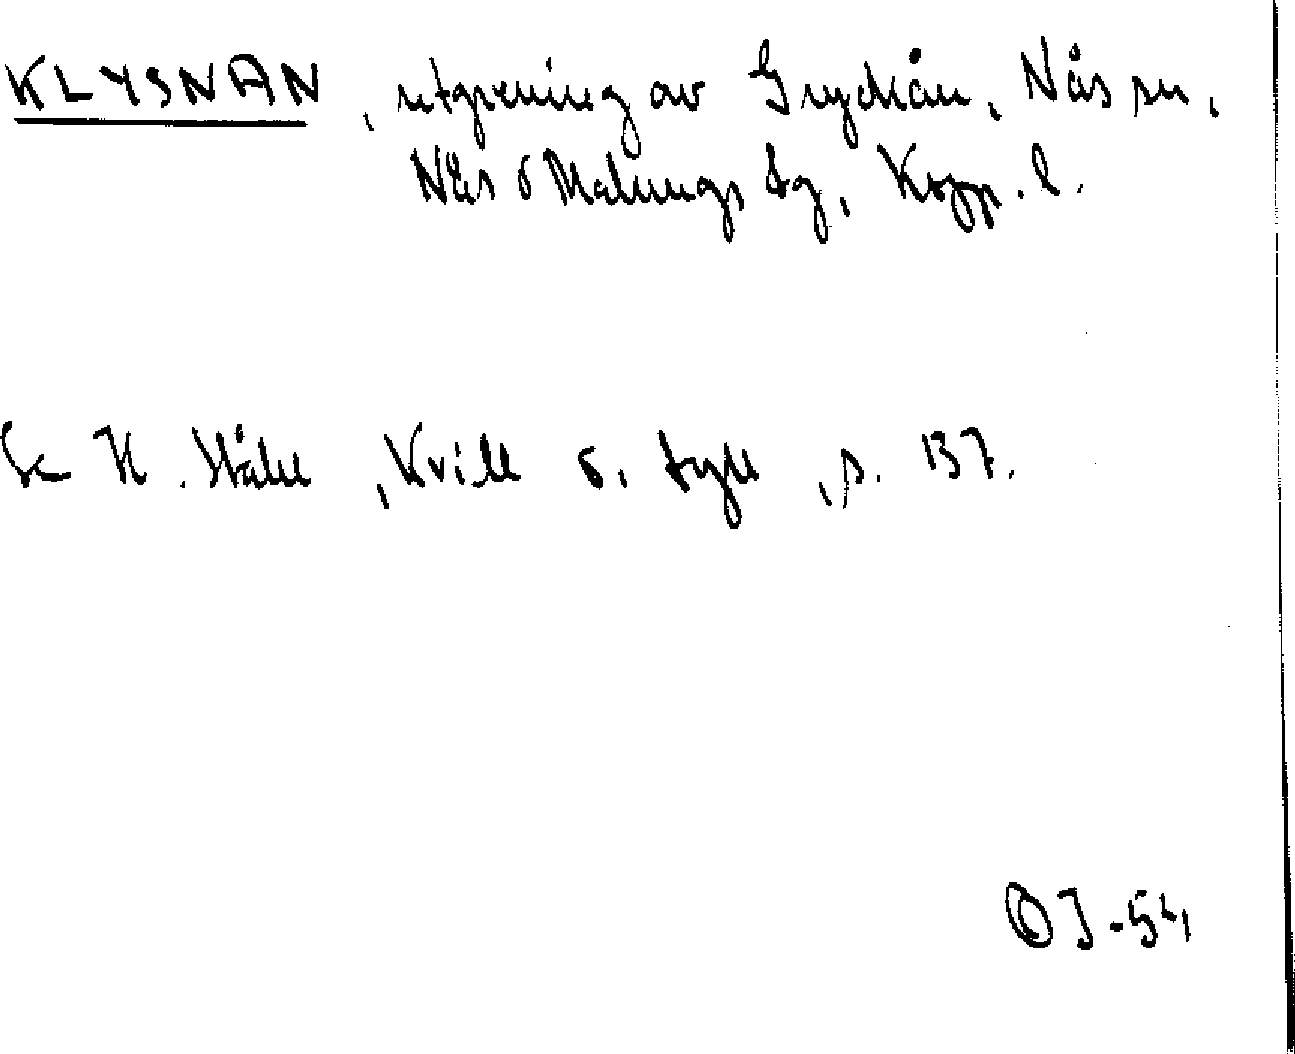 KLYSNAN, utgrening av Gryckån, Nås sn,
Nås o Malungs tg, Kopp. l.
Se H. Ståhl, Kvill o. tyll, s. 137.
OJ-54